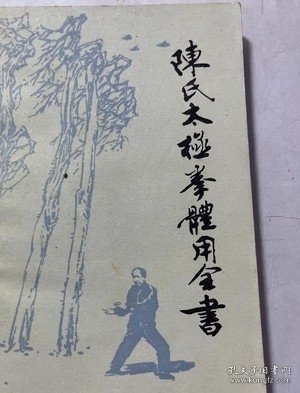 陳氏太極拳體用全書
孔夫子旧书网